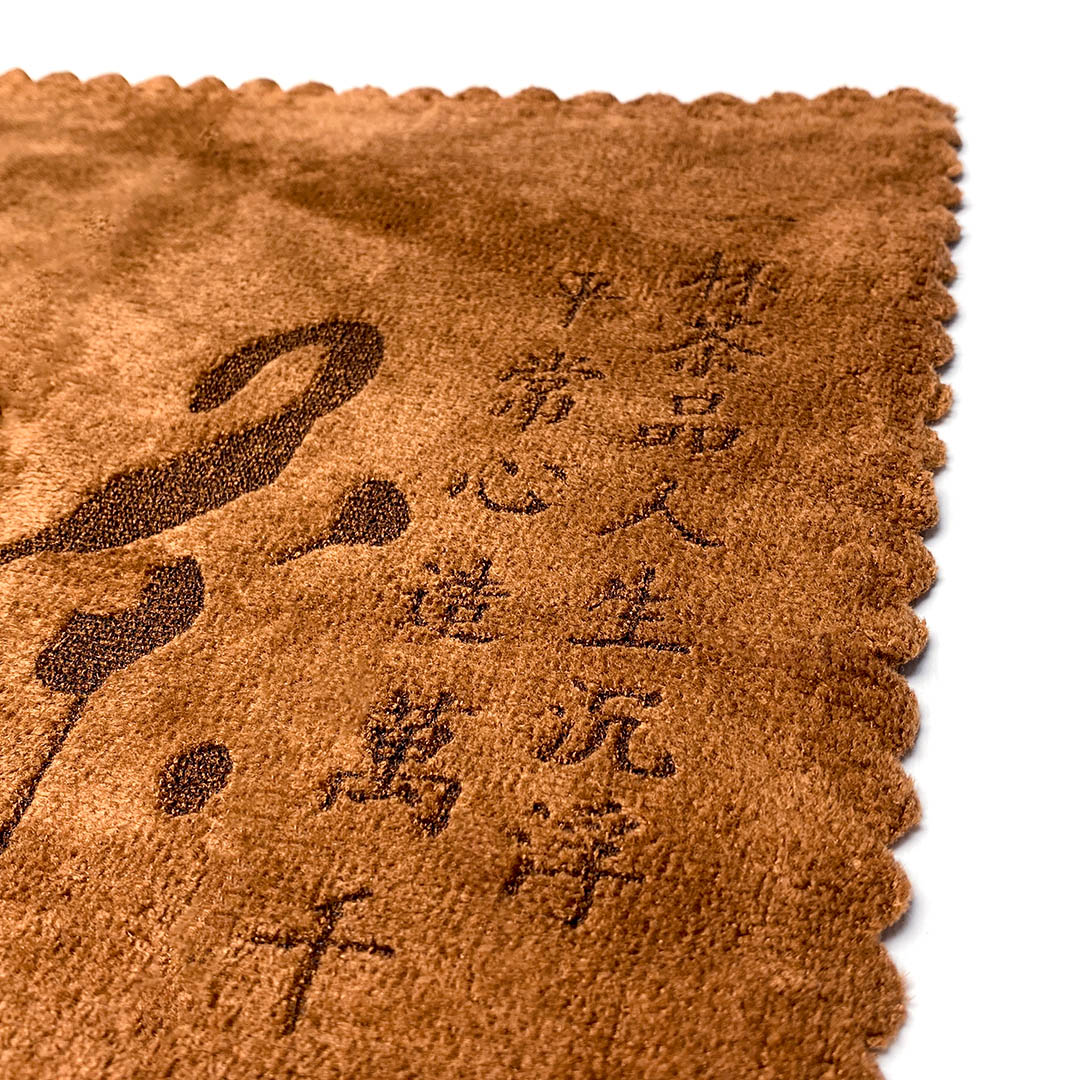 杯茶品人生沉浮
平常心造萬千